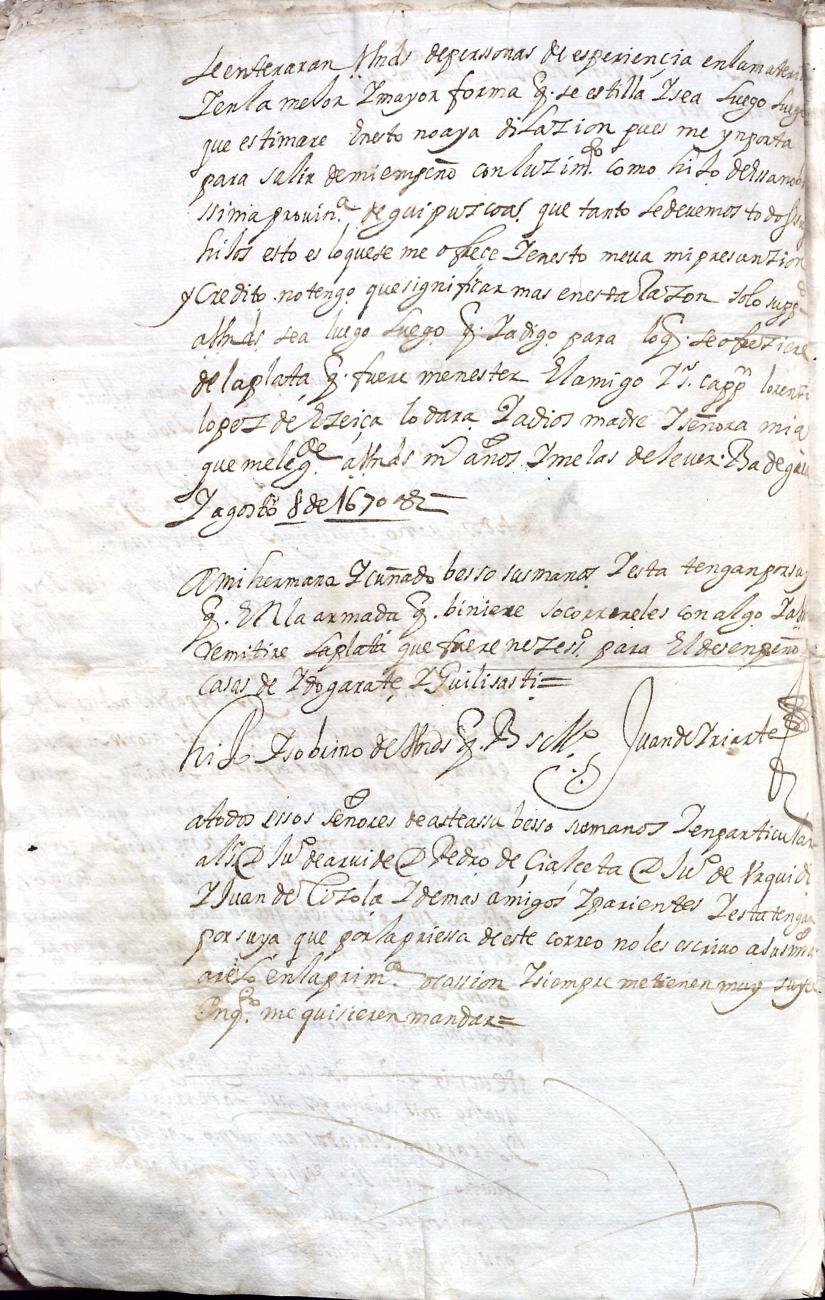 se enteraran Vmds de perssonas de esperiencia en la materi
Y en la mejor Y mayor forma q. se estilla Y sea luego luego
que estimare En esto no aya dilazion pues me ynporta
para salir de mi empeño con luzimto como hijo de essa no
ssima provina de guipuzcoa que tanto se devemos todos sus
hijos esto es lo que se me ofrece Y en esto me va mi presunzion
y Credito no tengo que significar mas en esta Razon solo suppco
a Vmds sea luego luego q. Ya digo para lo q. se ofreziere
de la plata q. fuere menester El amigo Y sr. cappn lorenzo
lopez de Ezeiça lo dara Y adios madre Y señora mia
que me le gde a Vmds ms años Y me las deje ver. Ba de
Y agosto 8 de 1670 as
A mi hermana Y cuñado besso sus manos Y esta tengan por suy
q. En la armada q. biniere socorrereles con algo Y all
Remitire la plata que fuere nezesso para El desenpeño
Casas de Ydogarate Y Guilisasti=
hijo Y sobrino de Vmds q. B ss Ms Juan de Yriarte
a todos essos señores de asteassu besso sus manos Y en particular
al Sr D Juo de arvide D Pedro de Çialceta D Juo de Vrquidi
Y Juan de Tozola Y demas amigos Y parientes Y esta tengan
por suya que por la priessa de este correo no les escrivo a sus mds
arelo en la prima ocassion Y siempre me tienen muy suyo
En qto me quisieren mandar=